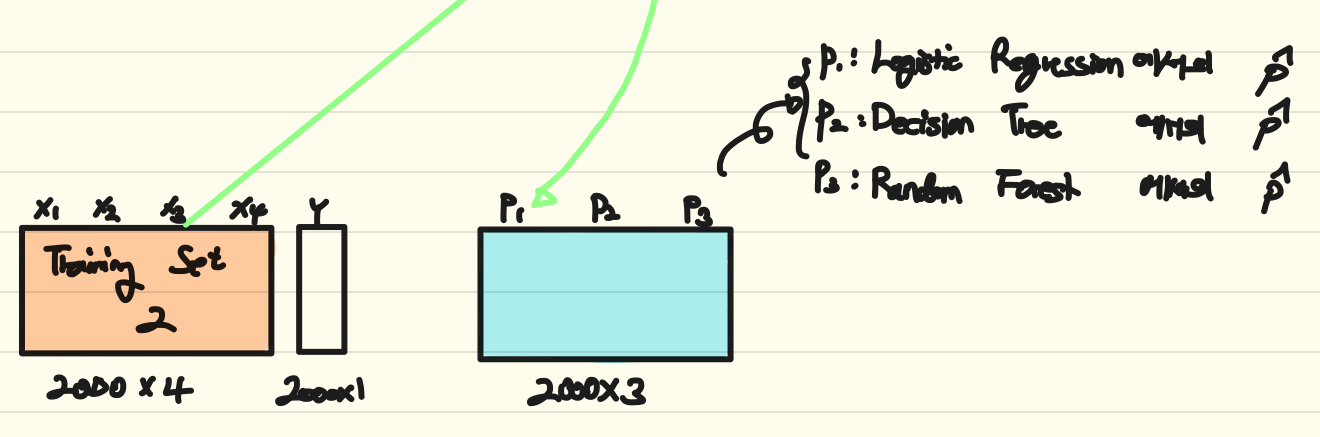 P₁: Logistic Regression
P₂: Decision Tree
P₃: Random Forest
X₁ X₂ X₃ X₄ Y P₁ P₂ P₃
Training Set
2
2000 X 4 2000X1 2000X3